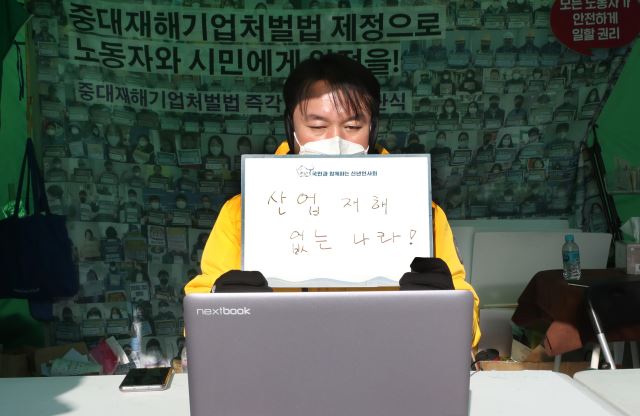 중대재해기업처벌법 제정으로
노동자와 시민에게
중대재해기업처벌법 즉각
식
모든 노동자가
안전하게
일할 권리
국민과 함께하는 신년인사회
산업 재해
없는 나라!
nextbook